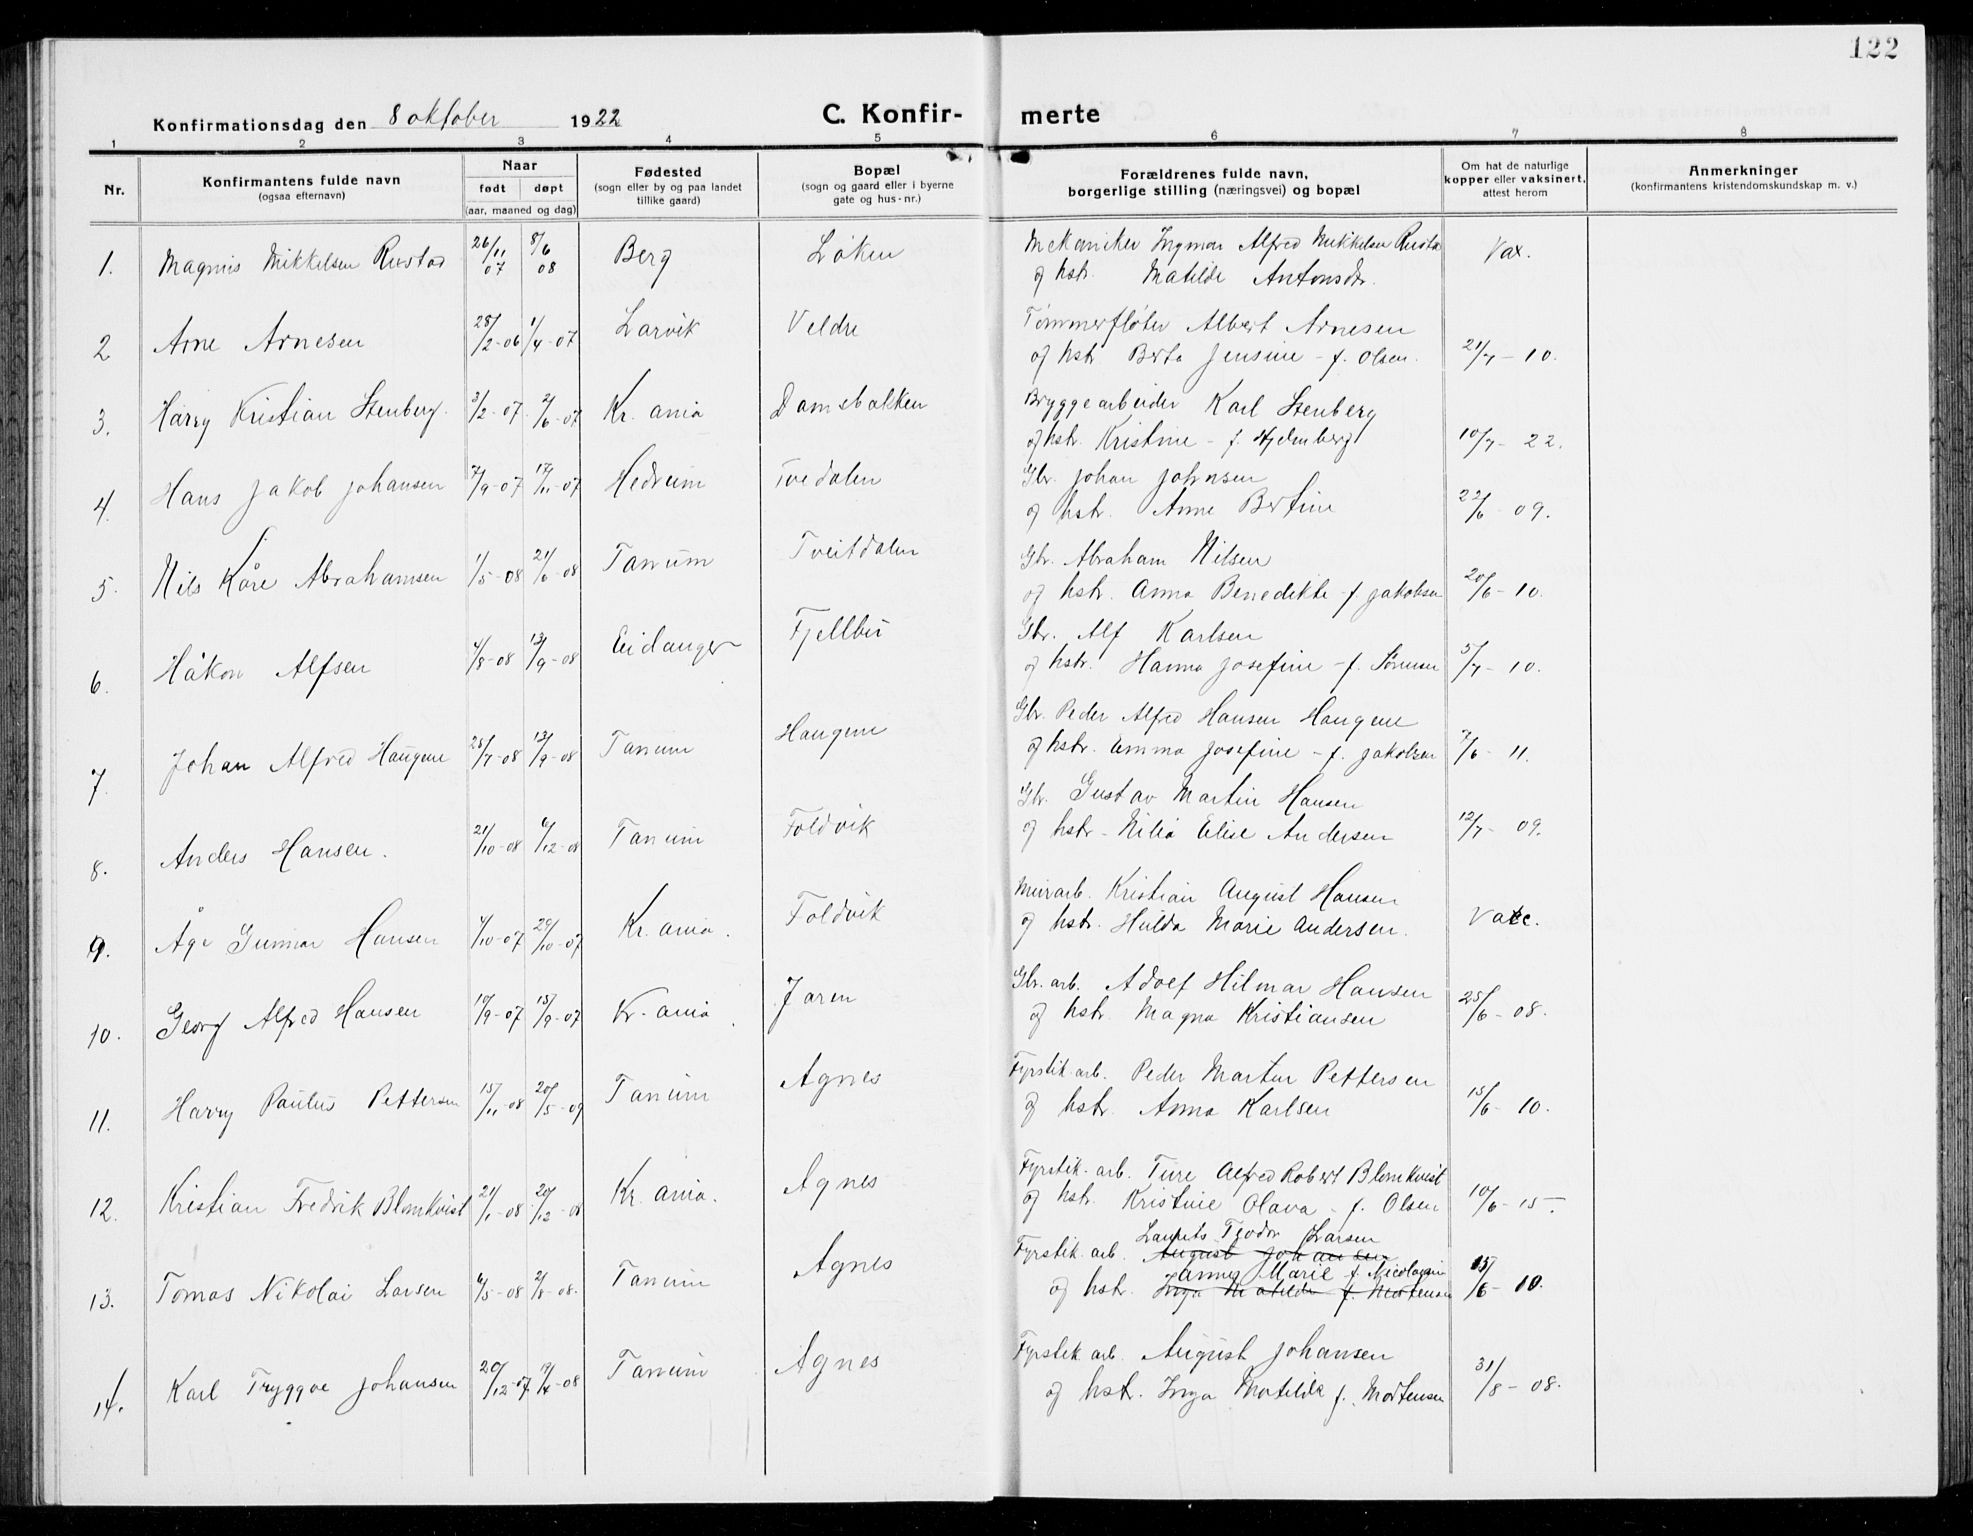 122
Konfirmationsdag den 8 oktober 1922 C. Konfir- merte
1 2 3 4 5 6 7 8
Nr. Konfirmantens fulde navn (ogsaa efternavn) Naar født døpt (aar, maaned og dag) Fødested (sogn eller by og paa landet tillike gaard) Bopæl (sogn og gaard eller i byerne gate og hus-nr.) Forældrenes fulde navn, borgerlige stilling (næringsvei) og bopæl Om hat de naturlige kopper eller vaksinert, attest herom Anmerkninger (konfirmantens kristendomskundskap m. v.)
1. Magnus Mikkelsen Rustad 26/11 07 8/6 08 Berg Løken Mekaniker Ingmar Alfred Mikkelsen Rustad Vax.
og hstr. Matilde Antonsdr.
2 Arne Arnesen 28/2-06 1/4-07 Larvik Veldre Tømmerfløter Albert Arnesen
og hstr. Berta Jensine - f. Olsen. 21/7-10.
3. Harry Kristian Stenberg. 3/2-07 2/6-07 Kr.ania Damsbakken Bryggearbeider Karl Stenberg
og hstr. Kristine - f. 10/7-22.
4. Hans Jakob Johansen 7/9-07 17/11-07 Hedrum Tvedalen Gbr. Johan Johnsen
og hstr. Anne Bertine 22/6 09.
5. Nils Kåre Abrahamsen 1/5-08 21/6-08 Tanum Tveitdalen Gbr. Abraham Nilsen
og hstr. Anna Benedikte f. Jakobsen 20/6-10.
6. Håkon Alfsen 4/8-08 13/9-08 Eidanger Fjellbu Gbr. Alf Karlsen
og hstr. Hanna Josefine - f. Sørensen 5/7-10.
7. Johan Alfred Haugene 28/7-08 13/9-08 Tanum Haugene Gbr. Peder Alfred Hansen Haugene
og hstr. Emma Josefine - f. Jakobsen 7/6-11.
8. Anders Hansen. 21/10-08 6/12-08 Tanum Foldvik Gbr. Gustav Martin Hansen
og hstr - Nilia Elise Andersen 12/7-09.
9. Åge Gunnar Hansen 4/10-07 29/10-07 Kr.ania. Foldvik Murarb. Kristian August Hansen
og hstr. Hulda Marie Andersen. Vacc.
10. Georg Alfred Hansen 10/9-07 15/9-07 Kr.ania. Jaren Gbr. arb. Adolf Hilmar Hansen
og hstr. Magna Kristiansen 25/6-08.
11. Harry Paulus Pettersen 15/11-08 20/5-09 Tanum Agnes Fyrstik.arb. Peder Martin Pettersen
og hstr. Anna Karlsen 15/6-10.
12. Kristian Fredrik Blomkvist 21/1-08 20/12-08 Kr.ania. Agnes Fyrstik.arb. Ture Alfred Robert Blomkvist
og hstr. Kristine Olava - f. Olsen 10/6-15.
Laurits Teodor Larsen
13. Tomas Nikolai Larsen 6/5-08 2/8-08. Tanum Agnes Fyrstik.arb. August Johansen
Anna Marie f. Nicolaisen
og hstr. Inga Matilde f. Mortensen 15/6-10.
14. Karl Tryggve Johansen 20/12-07 19/4-08 Tanum Agnes Fyrstik arb. August Johansen
og hstr. Inga Matilde f. Mortensen 31/8-08.